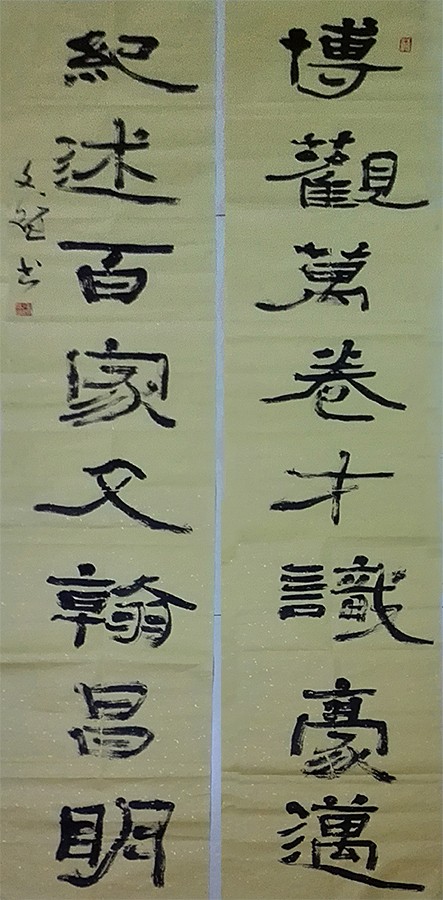 博觀萬卷才識豪邁
紀述百家文翰昌明
文 书